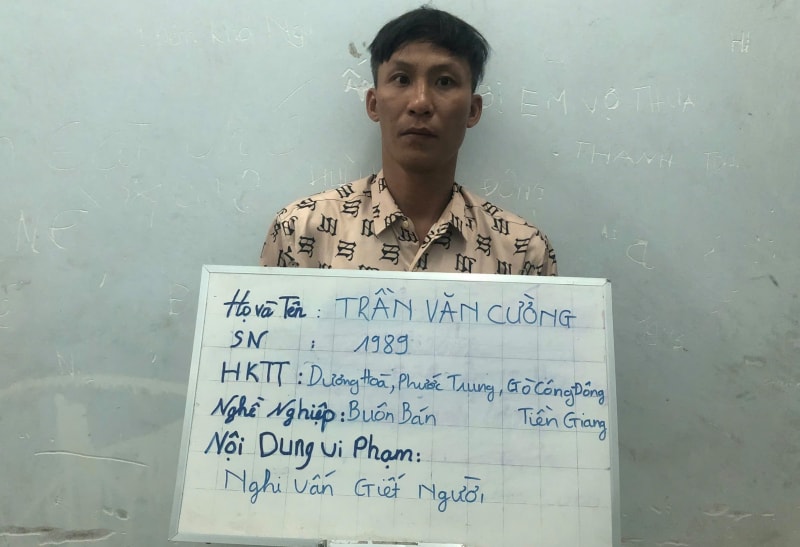 Hi
ĐI EM VỢ THUA
THANH
Họ và Tên : TRẦN VĂN CƯỜNG
SN : 1989
HKTT : Dương Hoà, Phước Trung, Gò Công Đông
Nghề Nghiệp : Buôn Bán Tiền Giang
Nội Dung Vi Phạm :
Nghi Vấn Giết Người